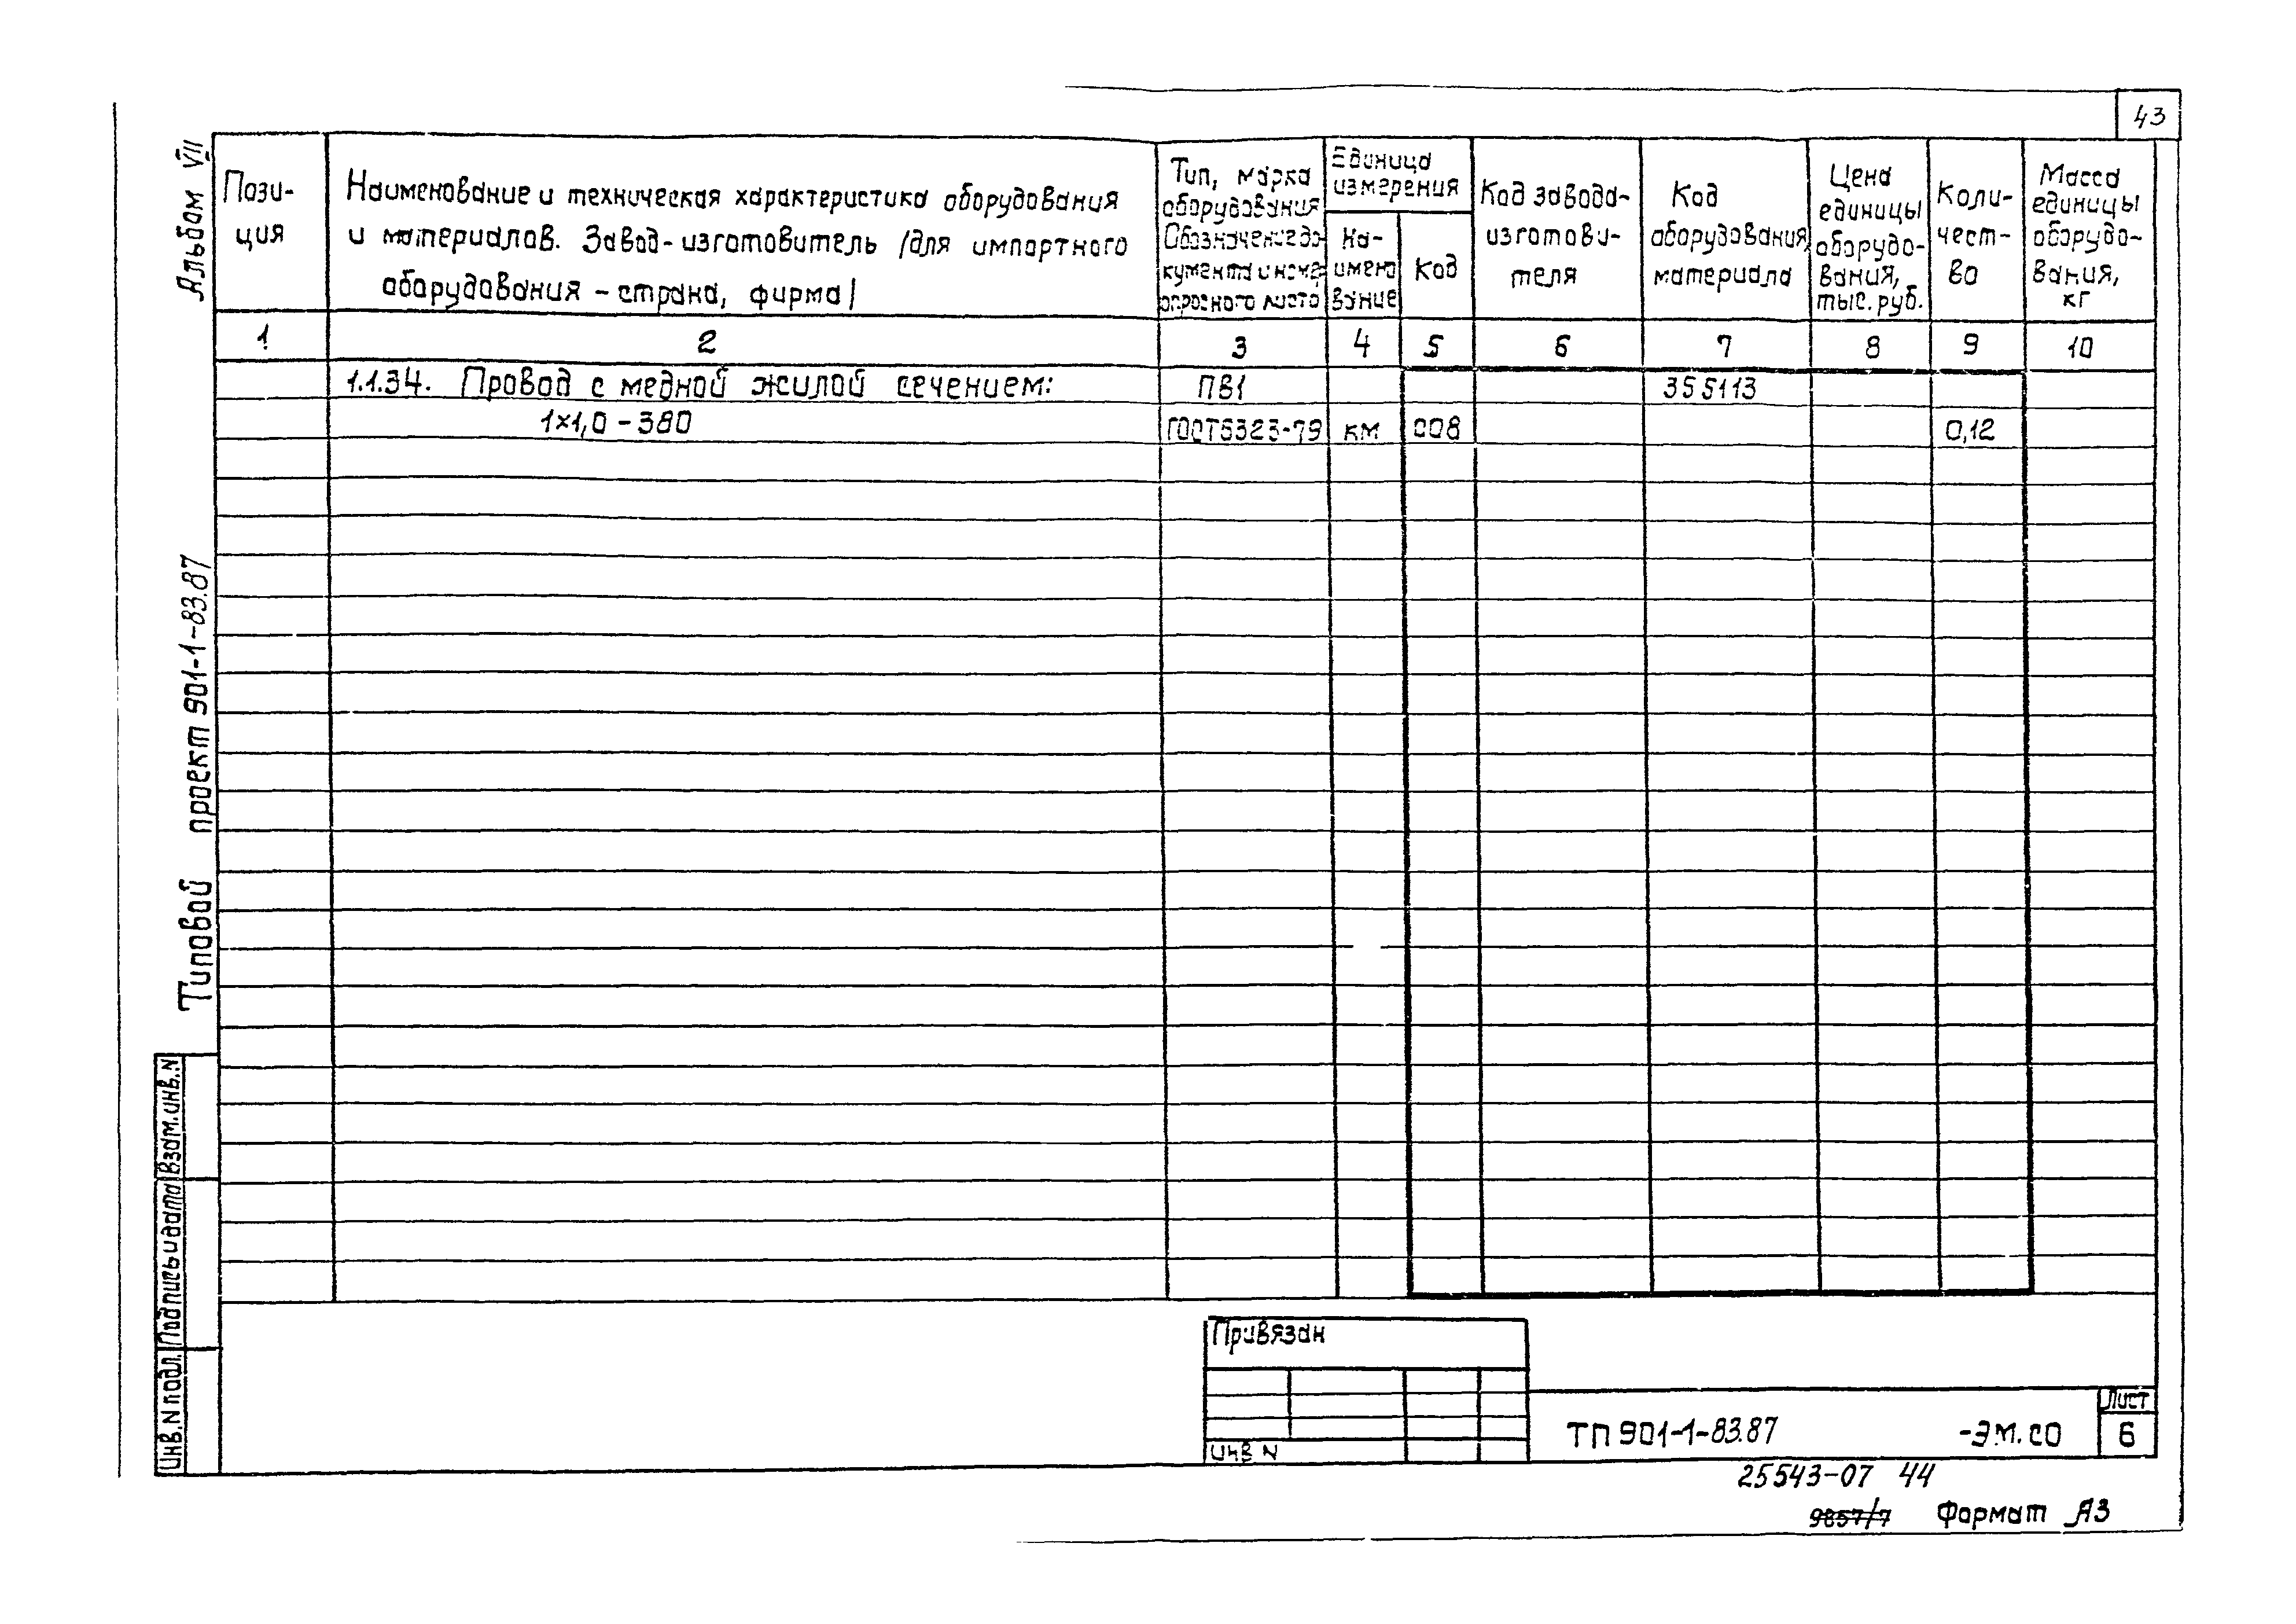 43
Альбом VII
Типовой проект 901-1-83.87
Пози-
ция
Наименование и техническая характеристика оборудования
и материалов. Завод-изготовитель /для импортного
оборудования – страна, фирма/
Тип, марка
оборудования
Обозначение до-
кумента и номер
опросного листа
Единица
измерения
На-
имено
вание
Код
Код завода-
изготови-
теля
Код
оборудования,
материала
Цена
единицы
оборудо-
вания,
тыс. руб.
Коли-
чест-
во
Масса
единицы
оборудо-
вания,
кг
1 2 3 4 5 6 7 8 9 10
1.1.34. Провод с медной жилой сечением: ПВ1 355113
1×1,0 – 380 ГОСТ6323-79 км 008 0,12
Взам. инв. N
Подпись и дата
Инв. N подл.
Привязан
Инв N
ТП 901-1-83.87 -ЭМ.СО
Лист
6
25543-07 44
9857/7 Формат А3